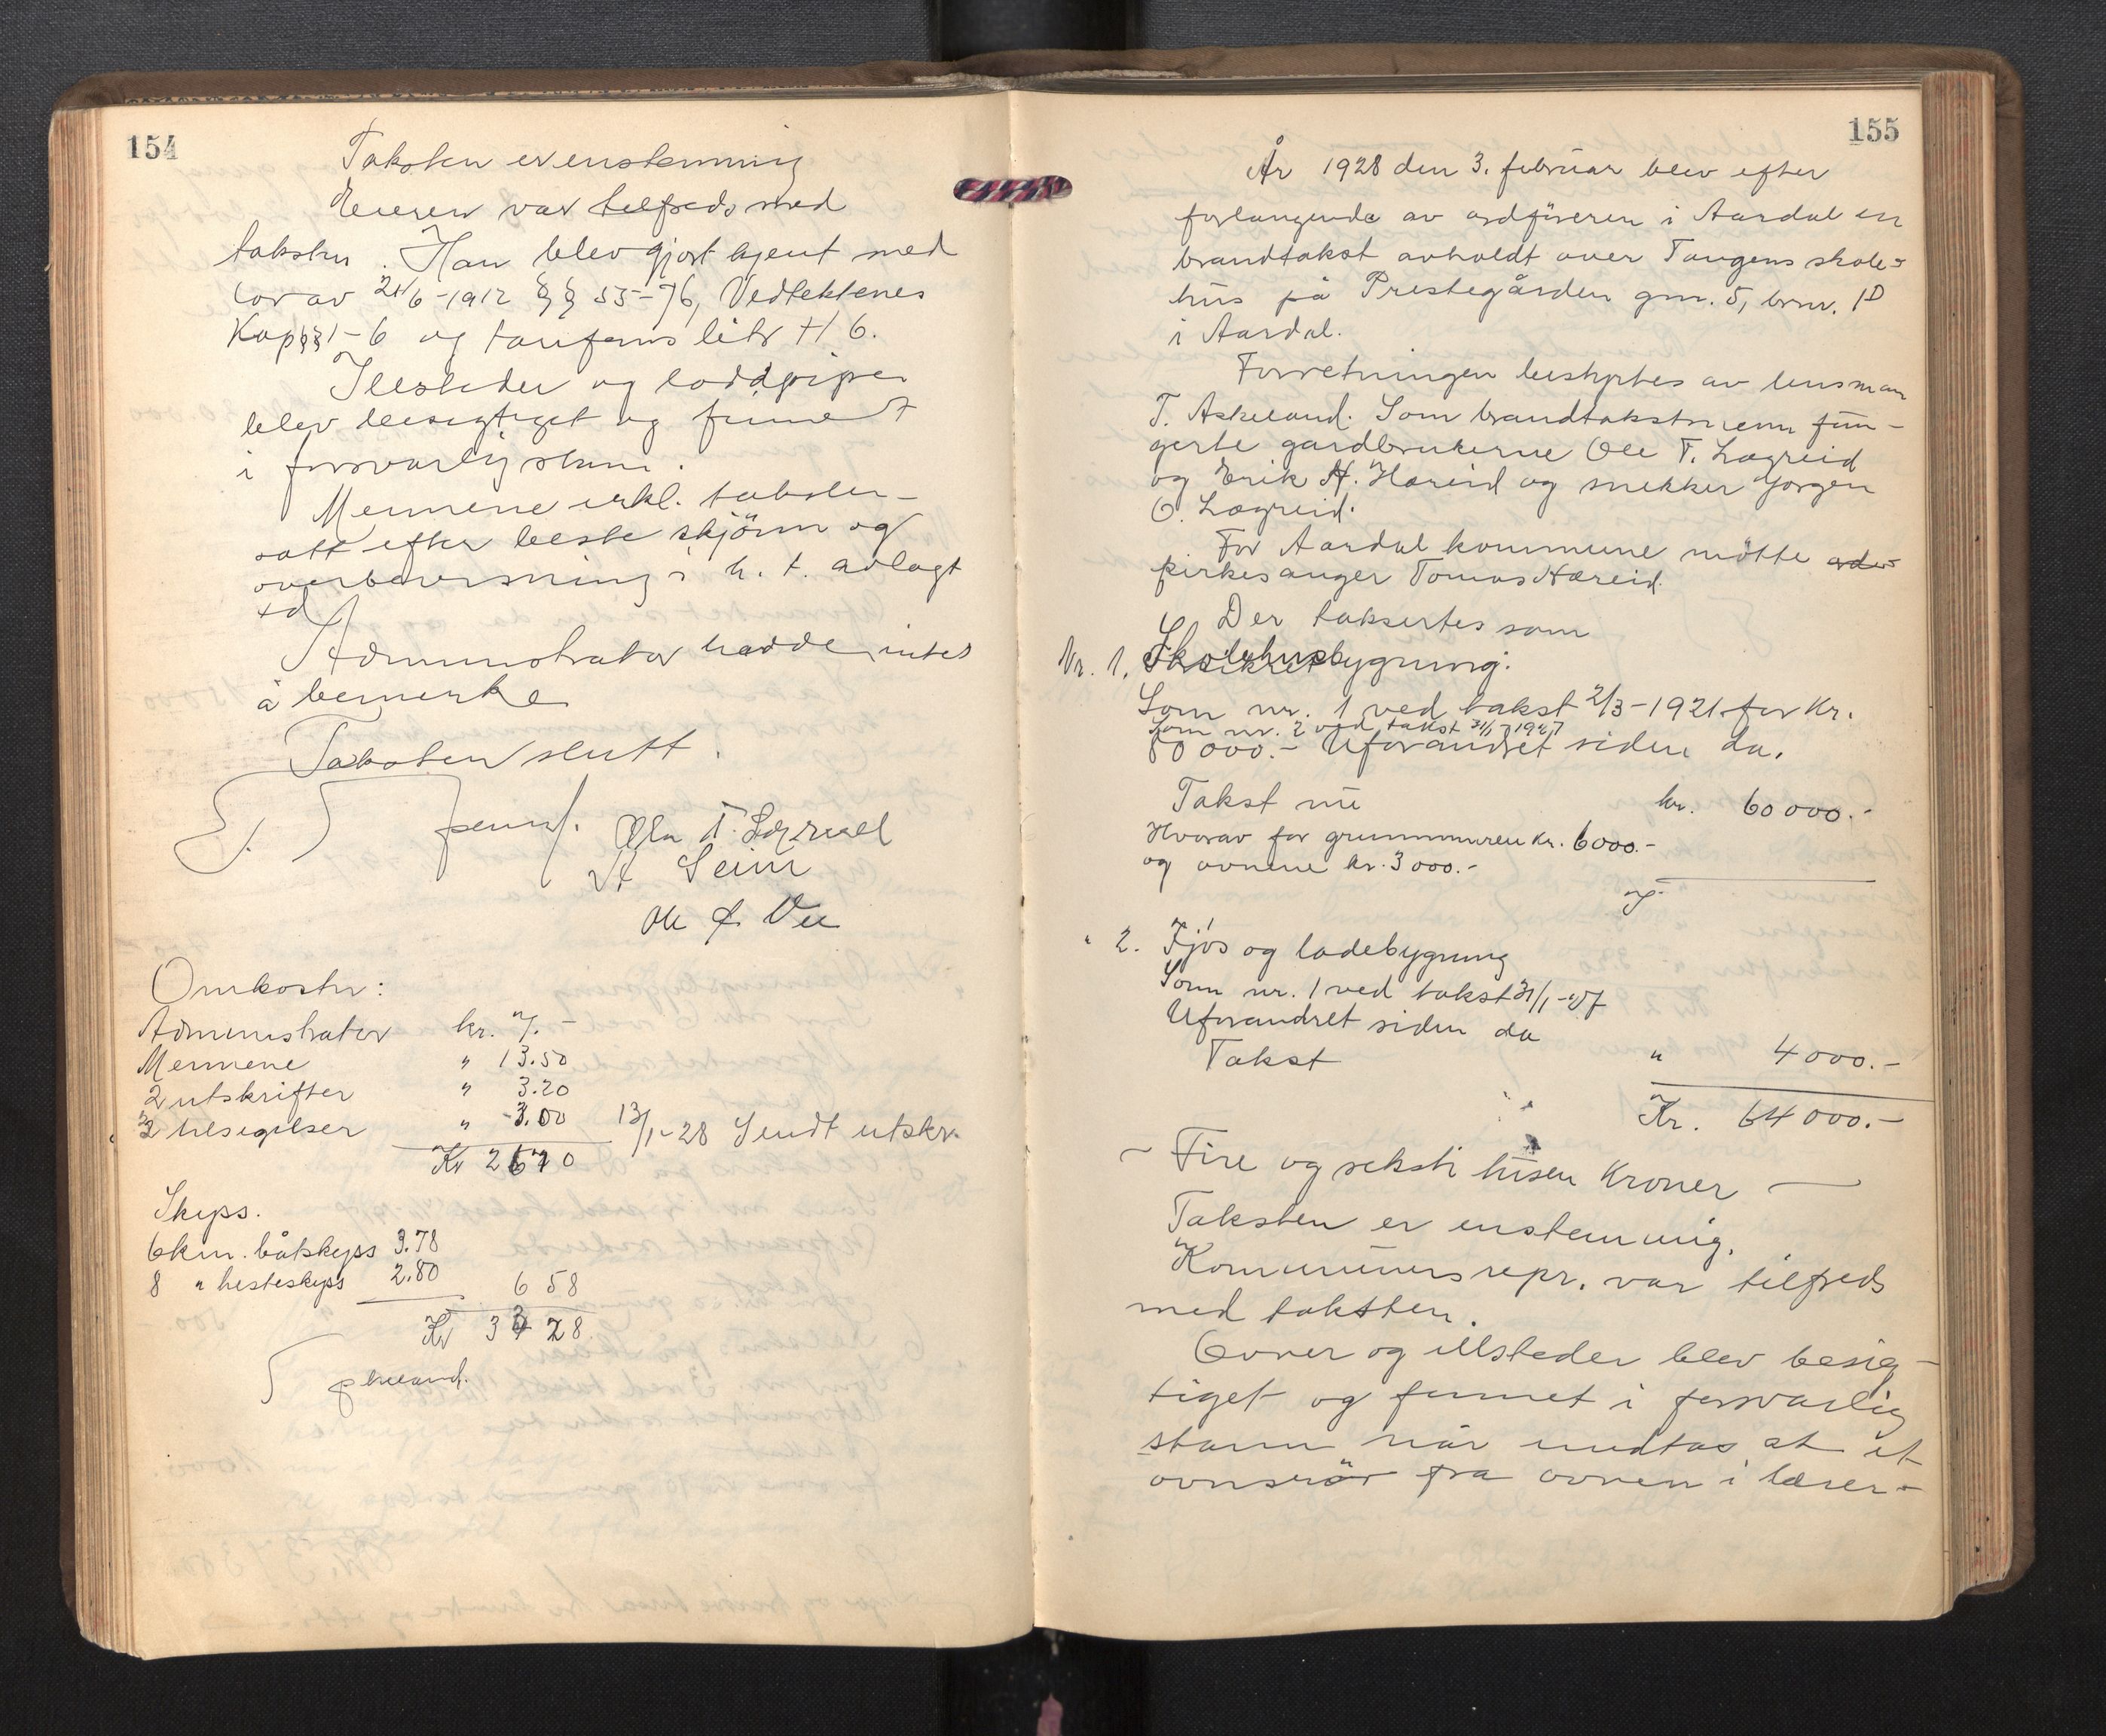 154
Taksten er enstemmig
Eieren var tilfreds med
taksten. Han blev gjort kjent med
lov av 21/6-1912 §§ 55-76, Vedtektenes
Kap §§ 1-6 og tariffens litr H 6.
Ildsteder og loddpiper
blev besigtiget og funnet
i forsvarlig stann.
Mennene erkl. taksten
satt efter beste skjönn og
overbevisning i h. t. avlagt
ed
Administrator hadde intet
å bemerke
Taksten slutt.
Ola T. Lægreid
Seim
Ole Vee
Omkostn:
Administrator kr. 7.-
Mennene " 13.50
2 utskrifter " 3.20
2 besigtelser " 3.00 13/1-28 Sendt utskr.
Kr 26 70
Skyss.
6 km. båtskyss 3.78
8 " hesteskyss 2.80 6 58
Kr 33 28
155
År 1928 den 3. februar blev efter
forlangende av ordföreren i Aardal en
brandtakst avholdt over Tangens skole-
hus på Prestegården gnr. 5, brnr. 1
i Aardal.
Forretningen bestyrtes av lensman
T. Askeland. Som brandtakstmenn fun-
gerte gardbrukerne Ole T. Lægreid
og Erik H. Hæreid og snekker Jorgen
O. Lægreid.
For Aardal kommune mötte
kirkesanger Tomas Hæreid.
Der taksertes som
Nr. 1. Skolehusbygning.
Som nr. 1 ved takst 2/3-1921 for Kr.
Som nr. 2 ved takst 31/1 1927
80 000.- Uforandret siden da.
Takst nu kr. 60 000.-
Hvorav for grunnmuren kr. 6000.-
og ovnene kr. 3000.-
" 2. Fjös og ladebygning
Som nr. 1 ved takst 31/1-27
Uforandret siden da
Takst " 4000.-
Kr. 64 000.-
- Fire og seksti tusen Kroner -
Taksten er enstemmig.
Kommunens repr. var tilfreds
med taksten.
Ovner og illsteder blev besig-
tiget og funnet i forsvarlig
stann når undtas at et
ovnsrör fra ovnen i lærer-